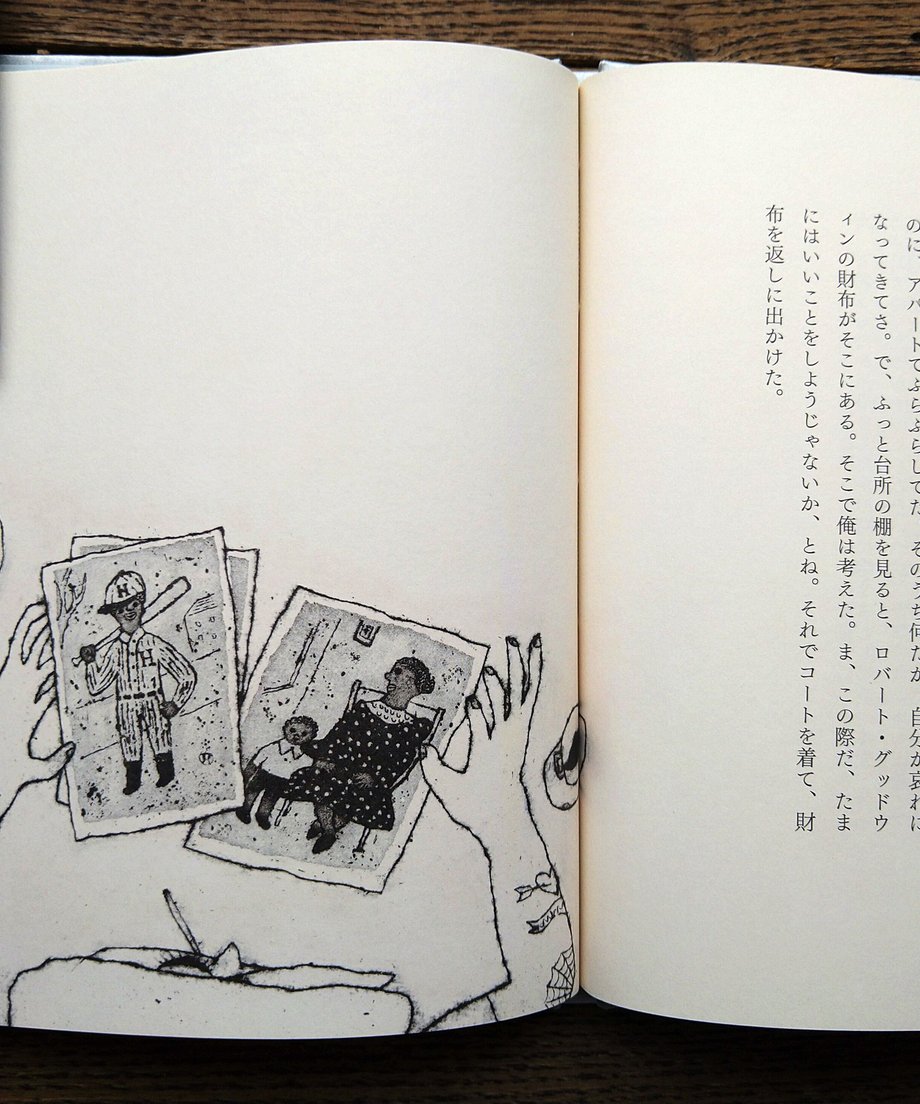 のに、アパートでぶらぶらしてた。そのうち何だか、自分が哀れに
なってきてさ。で、ふっと台所の棚を見ると、ロバート・グッドウ
ィンの財布がそこにある。そこで俺は考えた。ま、この際だ、たま
にはいいことをしようじゃないか、とね。それでコートを着て、財
布を返しに出かけた。
H
H